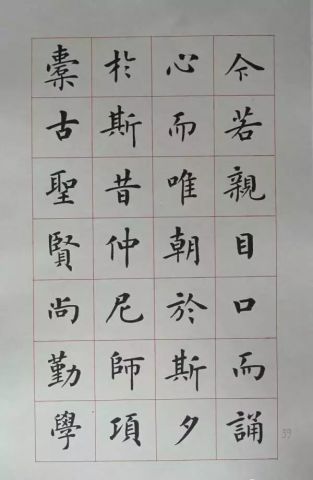 今若親目口而誦
心而唯朝於斯夕
於斯昔仲尼師項
橐古聖賢尚勤學
39